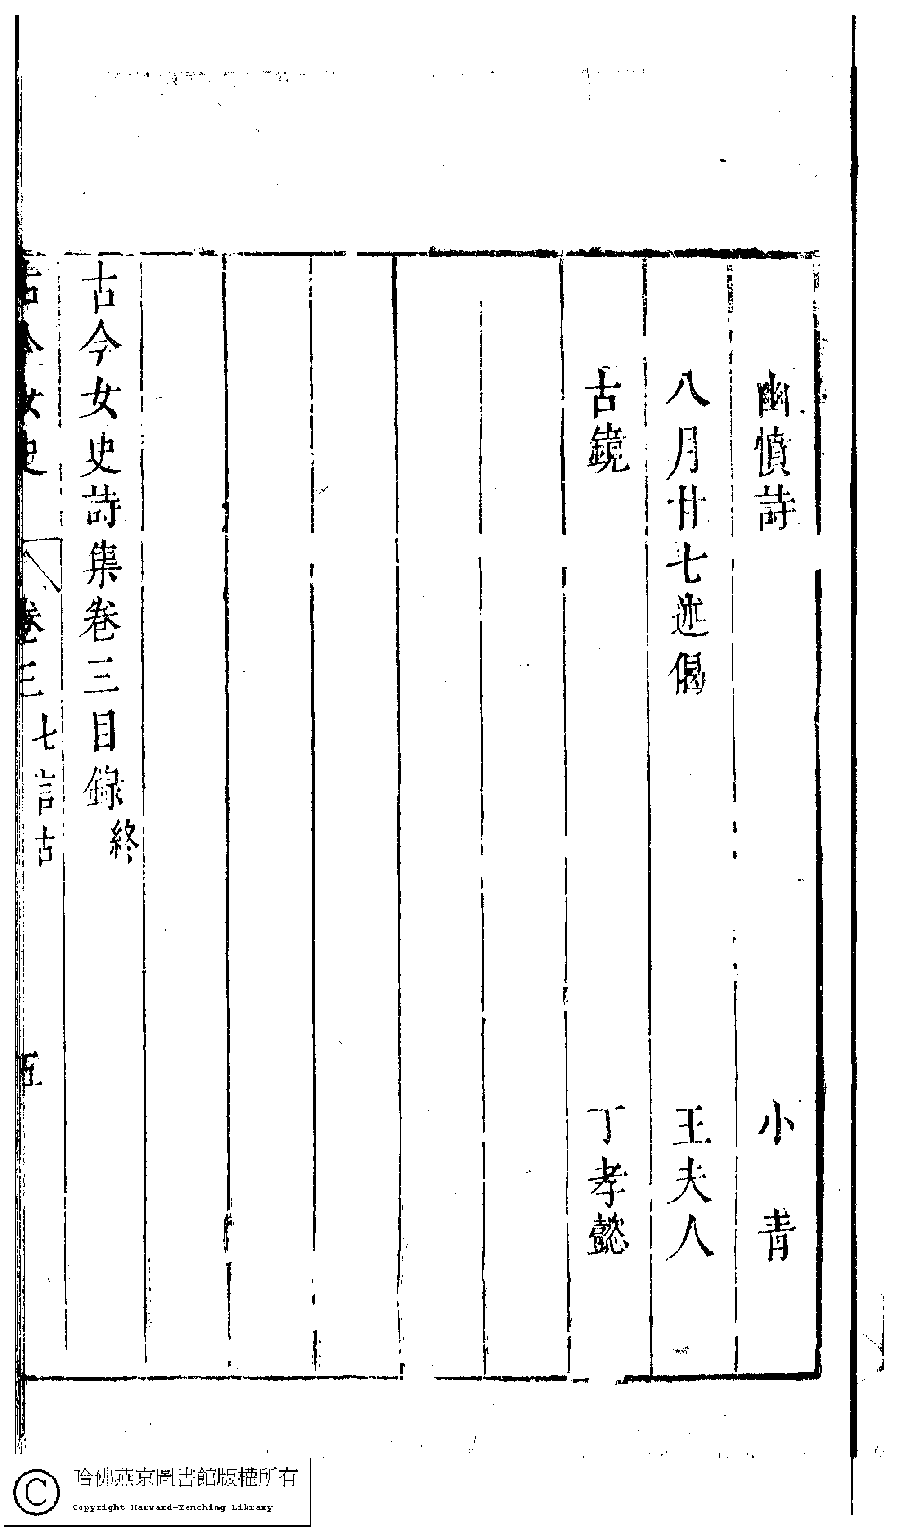 幽憤詩 小青
八月廿七述偈 王夫人
古鏡 丁孝懿
古今女史詩集卷三目錄終
古今女史 卷三 七言古 五
哈佛燕京圖書館版權所有
Copyright Harvard-Yenching Library